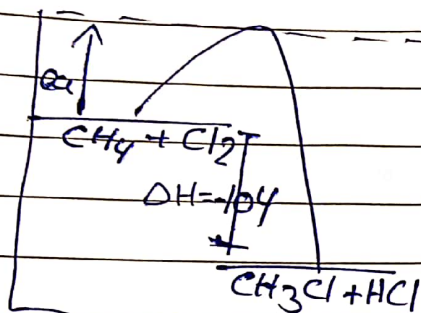 Ea
CH4 + Cl2
ΔH=-104
CH3Cl+HCl